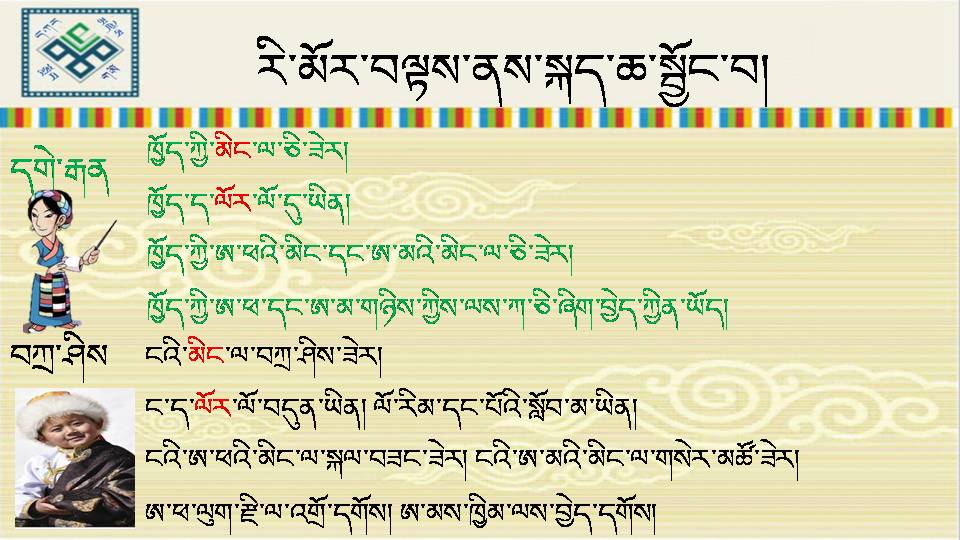 རི་མོར་བལྟས་ནས་སྐད་ཆ་སྦྱོང་བ།
དགེ་རྒན
ཁྱོད་ཀྱི་མིང་ལ་ཅི་ཟེར།
ཁྱོད་ད་ལོར་ལོ་དུ་ཡིན།
ཁྱོད་ཀྱི་ཨ་ཕའི་མིང་དང་ཨ་མའི་མིང་ལ་ཅི་ཟེར།
ཁྱོད་ཀྱི་ཨ་ཕ་དང་ཨ་མ་གཉིས་ཀྱིས་ལས་ཀ་ཅི་ཞིག་བྱེད་ཀྱིན་ཡོད།
བཀྲ་ཤིས
ངའི་མིང་ལ་བཀྲ་ཤིས་ཟེར།
ང་ད་ལོར་ལོ་བདུན་ཡིན། ལོ་རིམ་དང་པོའི་སློབ་མ་ཡིན།
ངའི་ཨ་ཕའི་མིང་ལ་སྐལ་བཟང་ཟེར། ངའི་ཨ་མའི་མིང་ལ་གསེར་མཚོ་ཟེར།
ཨ་ཕ་ལུག་རྫི་ལ་འགྲོ་དགོས། ཨ་མས་ཁྱིམ་ལས་བྱེད་དགོས།